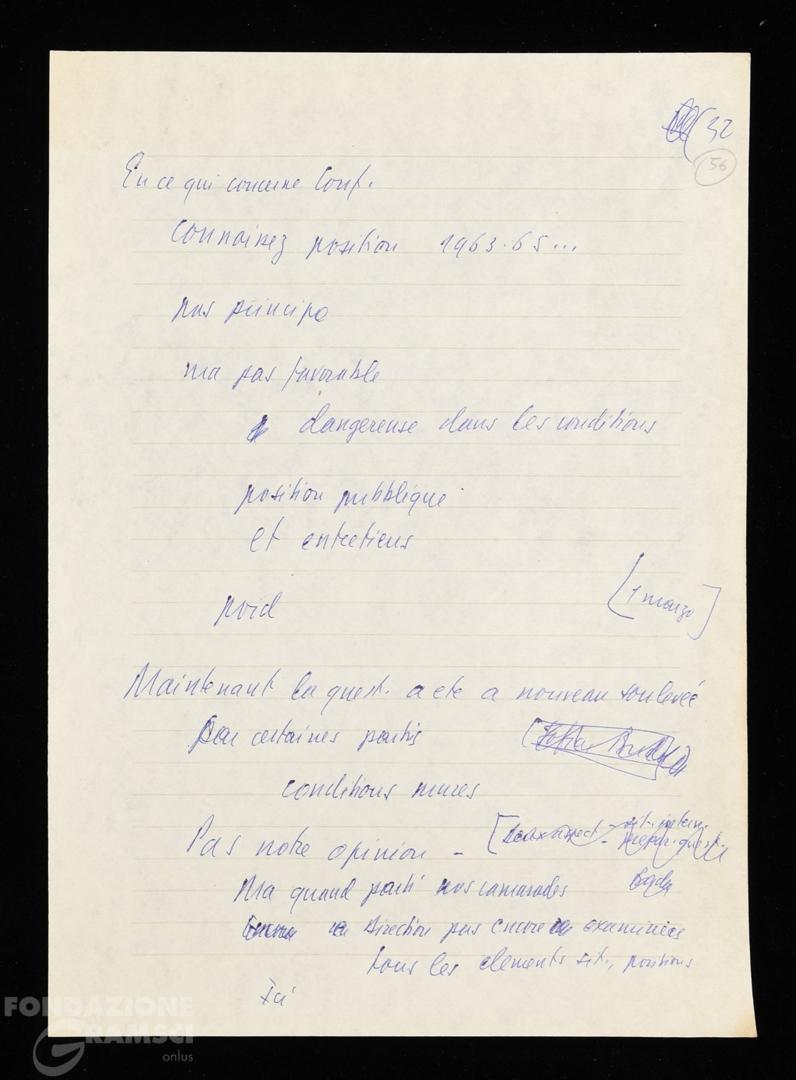 32
56
En ce qui concerne Conf.
connaissez position 1963-65...
pas principe
ma pas favorable
dangereuse dans les conditions
position pubblique
et entretiens
poid
[1 marzo]
Maintenant la quest. a été a nouveau soulevée
par certaines partis
conditions mures
Pas notre opinion -
Ma quand parti nos camarades
en Direction pas encore examinées
tous les elements sit., positions
ici
FONDAZIONE
GRAMSCI
onlus